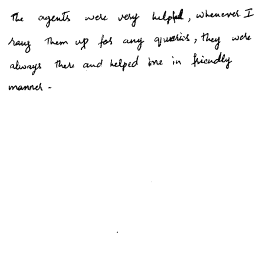 The agents were very helpful, whenever I
rang them up for any queries, they were
always there and helped me in friendly
manner.